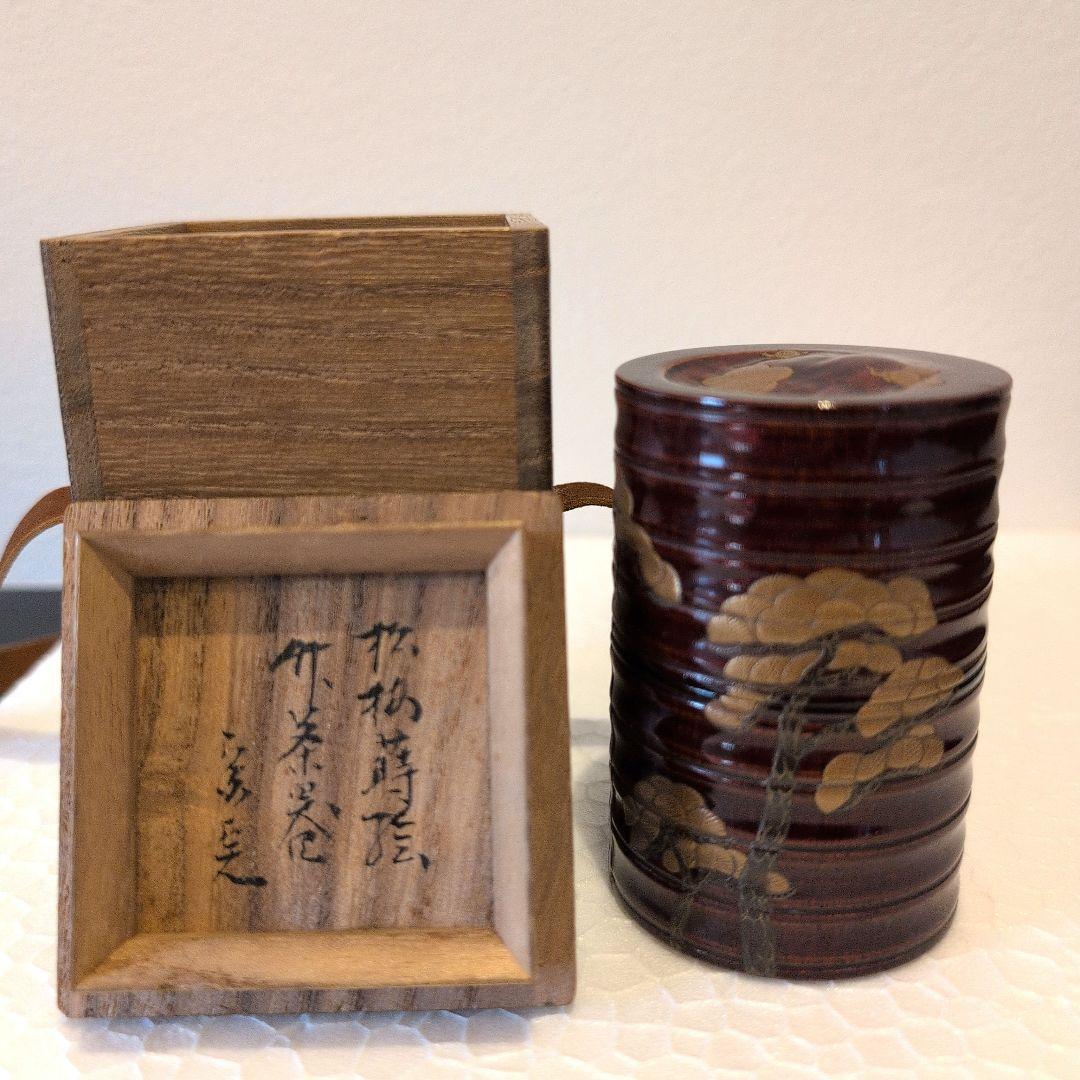 松梅蒔絵
竹茶器